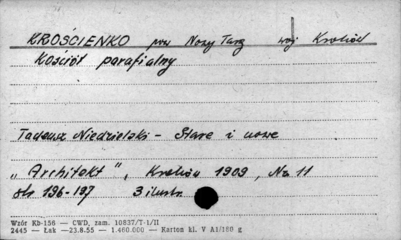 KROŚCIENKO pow Nowy Targ woj Kraków
Kościół parafialny
Tadeusz Niedzielski - Stare i nowe
„Architekt”, Kraków 1909, No 11
str. 196-197 3 ilustr.
Wzór Kb-156 — CWD, zam. 10837/T-1/II
2445 — Łak —23.8.55 — 1.460.000 — Karton kl. V A1/160 g